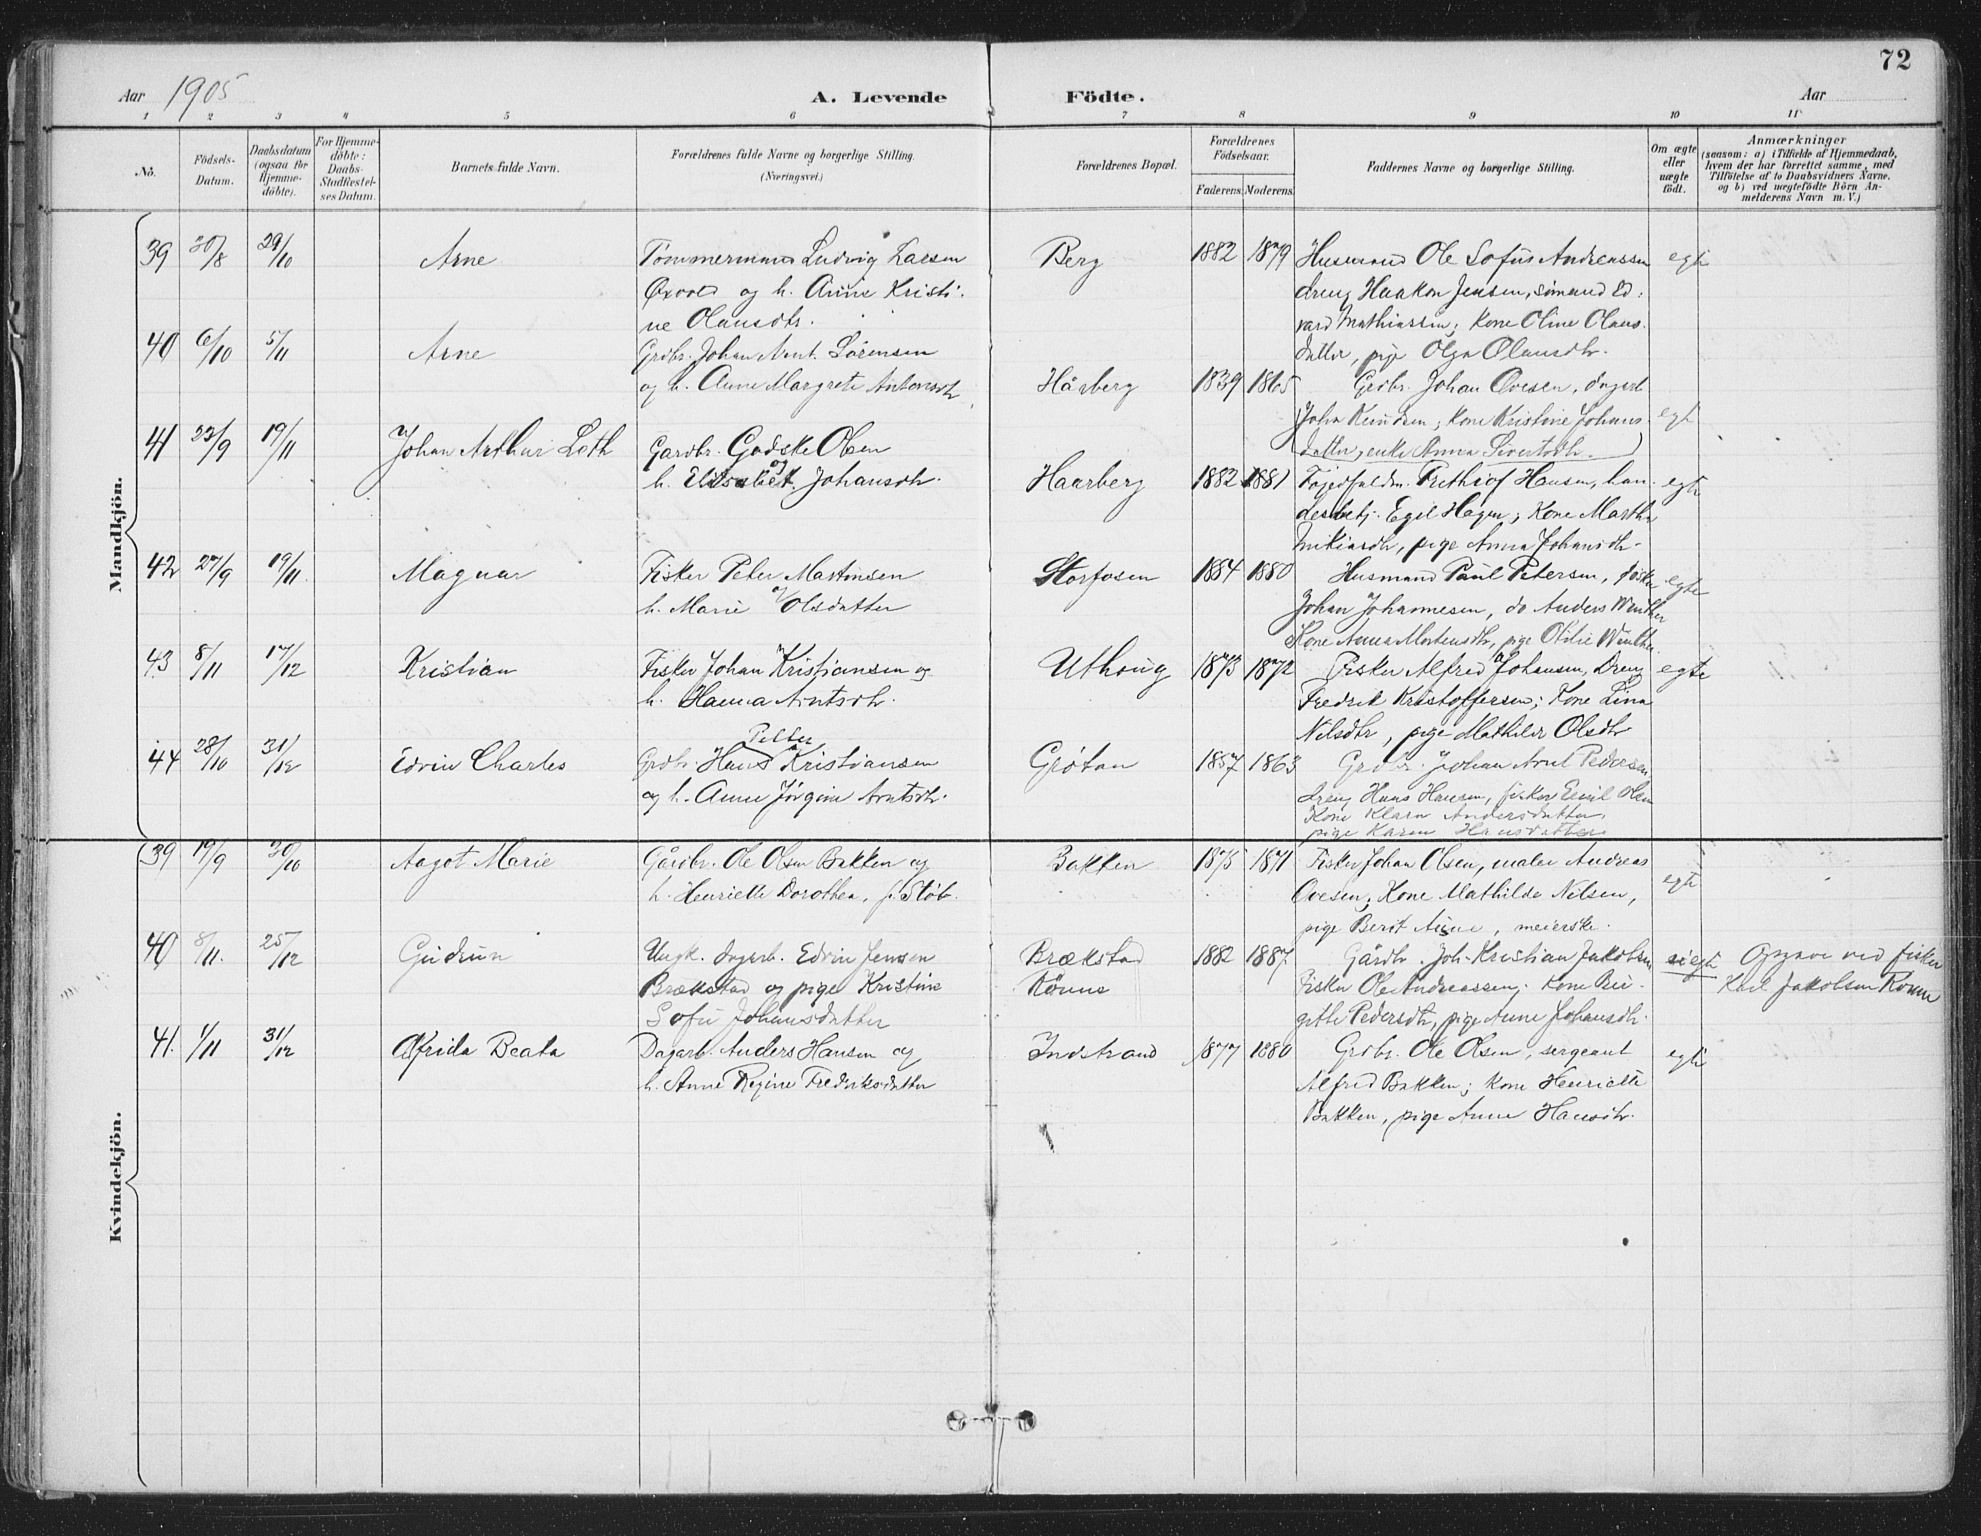 72
Aar 1905
A. Levende Födte.
Aar
1 2 3 4 5 6 7 8 9 10 11
No.
Födsels-Datum.
Daabsdatum (ogsaa för Hjemmedöbte).
For Hjemmedöbte: Daabs-Stadfæstelses Datum.
Barnets fulde Navn.
Forældrenes fulde Navne og borgerlige Stilling. (Næringsvei.)
Forældrenes Bopæl.
Forældrenes Födselsaar.
Faderens. Moderens.
Faddernes Navne og borgerlige Stilling.
Om ægte eller uægte födt.
Anmærkninger
(saasom: a) i Tilfælde af Hjemmedaab, hvem der har forrettet samme, med Tilföielse af to Daabsvidners Navne. og b) ved uægtefödte Börn Anmelderens Navn m. V.)
Mandkjön.
39 30/8 29/10 Arne
Tømmermand Ludvig Larsen
Øxvold og h. Anne Kristi-
ne Olausdtr.
Berg 1882 1879
Husmand Ole Sofus Andreassen
dreng Haakon Jensen, sømand Ed-
vard Mathiassen; Kone Oline Olaus-
datter, pige Olga Olausdtr.
egte
40 6/10 5/11 Arne
Grdbr. Johan Arnt Sørensen
og h. Anne Margrete Antonsdtr
Hårberg 1839 1865
Grdbr. Johan Ovesen, dagarb.
John Knudsen; Kone Kristine Johans-
datter, enke Anna Sivertsdtr.
egte
41 23/9 19/11 Johan Arthur Loth
Gardbr. Godske Olsen
og
h. Elisabet Johansdtr.
Haarberg 1882 1881
Frithiof Hansen, han-
delsbetj. Egil Hagen; Kone Martha
pige Anna Johansdtr.
egte
42 27/9 19/11 Magnar
Fisker Peter Martinsen
og
h. Marie Olsdatter
Storfosen 1884 1880
Husmand Paul Petersen, fisker
Johan Johannesen, do Anders Winther
Kone Anna Mortensdtr, pige Otilie Winther
egte
43 8/11 17/12 Kristian
Fisker Johan Kristiansen og
h. Hanna Arntsdtr.
Uthoug 1873 1872
Fisker Alfred Johansen, Dreng
Fredrik Kristoffersen; Kone Lina
Nilsdtr, pige Mathilde Olsdtr
egte
44 28/10 31/12 Edvin Charles
Petter
Grdbr. Hans Kristiansen
og h. Anne Jørgine Arntsdtr.
Grøtan 1857 1863
Grdbr. Johan Arnt Pedersen
dreng Hans Hansen, fisker Emil Olsen
Kone Klara Andersdatter,
pige Karen Hansdatter
Kvindekjön.
39 19/9 30/10 Aagot Marie
Gårdbr. Ole Olsen Bakken og
h. Henriette Dorothea, f. Støb.
Bakken 1875 1871
Fisker Johan Olsen, maler Andreas
Ovesen; Kone Mathilde Nilsen,
pige Berit Aune, meierske.
egte
40 8/11. 25/12 Gudrun
Ungk. dagarb. Edvin Jensen
Brækstad og pige Kristine
Sofie Johansdatter
Brækstad
Rønne
1882 1887
Gårdbr. Joh. Kristian Jakobsen
Fisker Ole Andreassen; Kone Bir-
gitte Pedersdtr, pige Anne Johansdtr.
uegte
Opgave ved fisker
Karl Jakobsen Rønne
41. 1/11 31/12 Alfrida Beata
Dagarb. Anders Hansen og
h. Anne Regine Fredriksdatter
Indstrand 1877 1880
Grdbr. Ole Olsen, sergeant
Alfred Bakken; Kone Henriette
Bakken, pige Anne Hansdtr.
egte